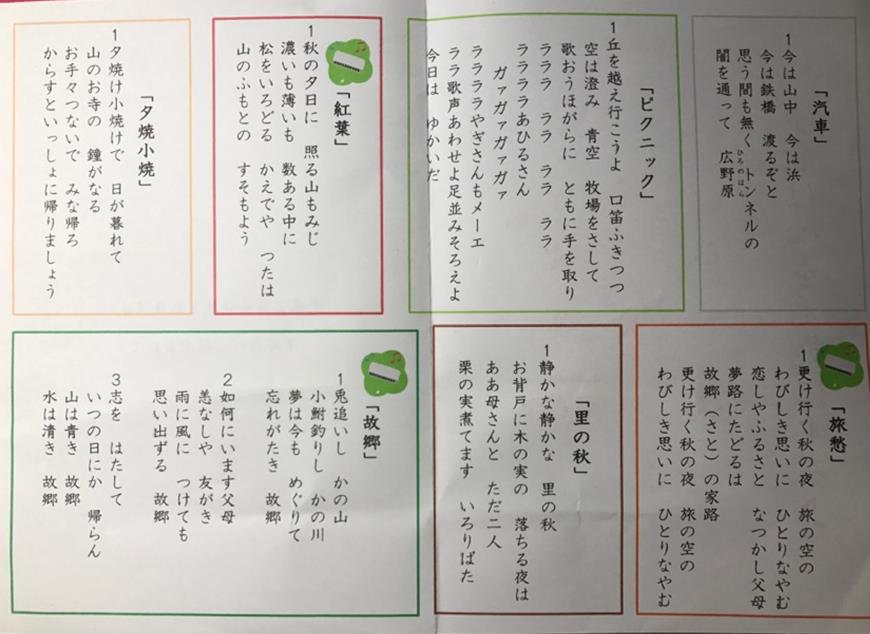 「汽車」
1今は山中　今は浜
今は鉄橋　渡るぞと
思う間も無く　トンネルの
闇を通って　広野原
ひろのはら
「ピクニック」
1丘を越え行こうよ　口笛ふきつつ
空は澄み　青空　牧場をさして
歌おうほがらに　ともに手を取り
ラララ　ララ　ララ　ララ
ララララあひるさん
ガァガァガァガァ
ララララやぎさんもメーエ
ララ歌声あわせよ足並みそろえよ
今日は　ゆかいだ
「紅葉」
1秋の夕日に　照る山もみじ
濃いも薄いも　数ある中に
松をいろどる　かえでや　つたは
山のふもとの　すそもよう
「夕焼小焼」
1夕焼け小焼けで　日が暮れて
山のお寺の　鐘がなる
お手々つないで　みな帰ろ
からすといっしょに帰りましょう
「旅愁」
1更け行く秋の夜　旅の空の
わびしき思いに　ひとりなやむ
恋しやふるさと　なつかし父母
夢路にたどるは
故郷（さと）の家路
更け行く秋の夜　旅の空の
わびしき思いに　ひとりなやむ
「里の秋」
1静かな静かな　里の秋
お背戸に木の実の　落ちる夜は
ああ母さんと　ただ二人
栗の実煮てます　いろりばた
「故郷」
1兎追いし　かの山
小鮒釣りし　かの川
夢は今も　めぐりて
忘れがたき　故郷
2如何にいます父母
恙なしや　友がき
雨に風に　つけても
思い出ずる　故郷
3志を　はたして
いつの日にか　帰らん
山は青き　故郷
水は清き　故郷